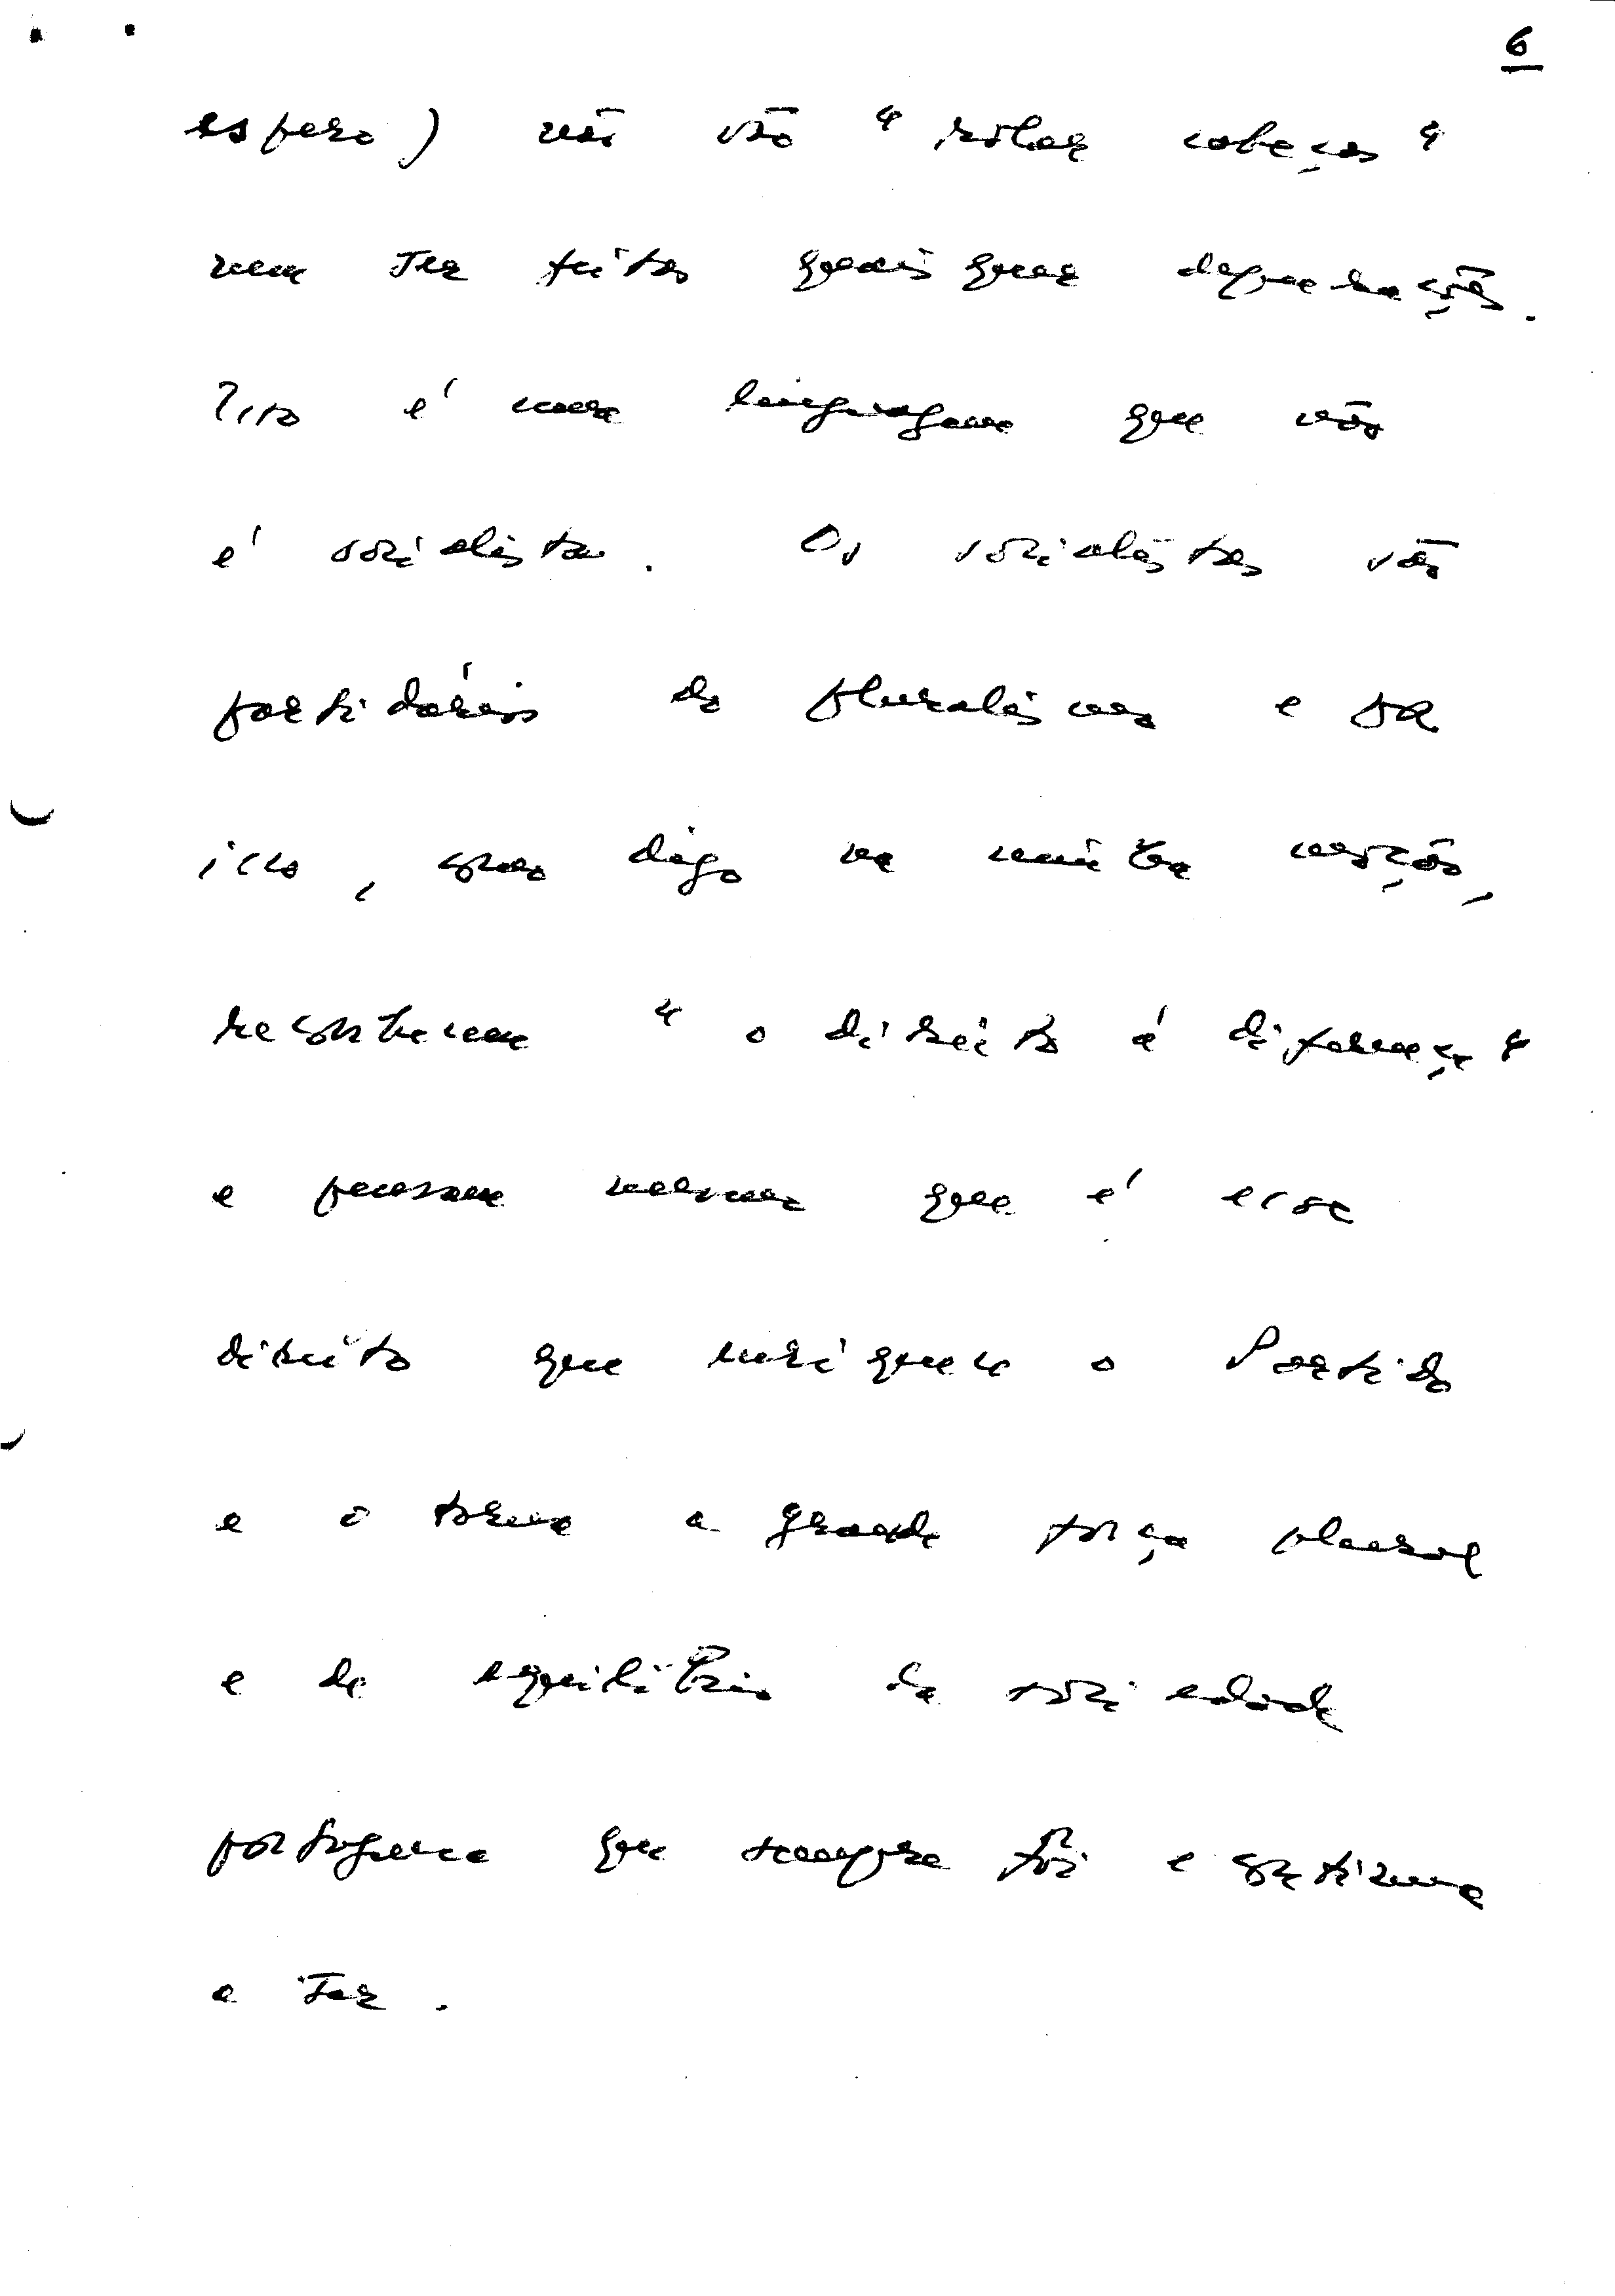 6
espero) não vão "rolar cabeças"
nem ser feitas quaisquer depurações.
Isso é uma linguagem que não
é socialista. Os socialistas são
partidários do pluralismo e por
isso, como digo na minha moção,
reconhecem "o direito à diferença"
e pensam mesmo que é esse
direito que enriquece o Partido
e o torna a grande força plural
e de equilíbrio da sociedade
portuguesa que sempre foi e continua
a ser.